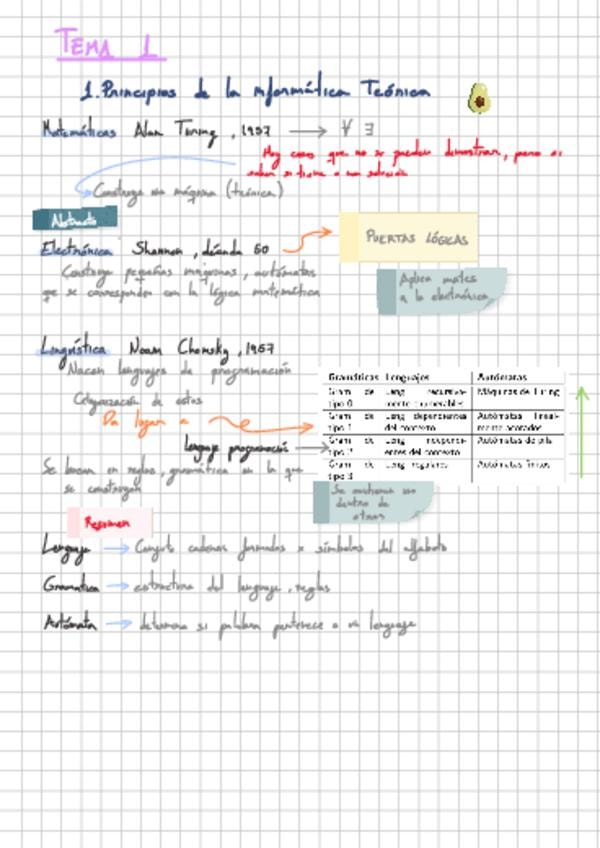 TEMA 1
1. Principios de la Informática Teórica
Matemáticas Alan Turing, 1937 → ∀ ∃
Hay cosas que no se pueden demostrar, pero si
saber si tiene o no solución
Construye una máquina (teórica)
Abstracto
Electrónica Shannon, década 60
PUERTAS LÓGICAS
Construye pequeñas máquinas, autómatas
que se corresponden con la lógica matemática
Aplica mates
a la electrónica
Lingüística Noam Chomsky, 1957
Nacen lenguajes de programación
Categorización de estos
Da lugar a
Gramáticas Lenguajes Autómatas
Gram de tipo 0 Leng recursiva-mente enumerables Máquinas de Turing
Gram de tipo 1 Leng dependientes del contexto Autómatas lineal-mente acotados
Gram de tipo 2 Leng independi-entes del contexto Autómatas de pila
Gram de tipo 3 Leng regulares Autómatas finitos
lenguaje programación →
Se basan en reglas, gramática en la que
se construyen
Se contienen uno
dentro de
otros
Resumen
Lenguaje → Conjunto cadenas formadas x símbolos del alfabeto
Gramática → estructura del lenguaje, reglas
Autómata → determina si palabra pertenece a un lenguaje